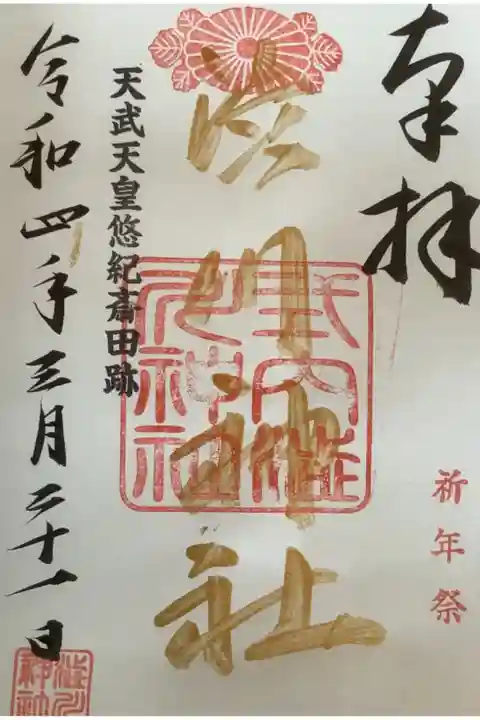 奉拝
祈年祭
渋川神社
式内澁川神社
天武天皇悠紀斎田跡
令和四年三月二十一日